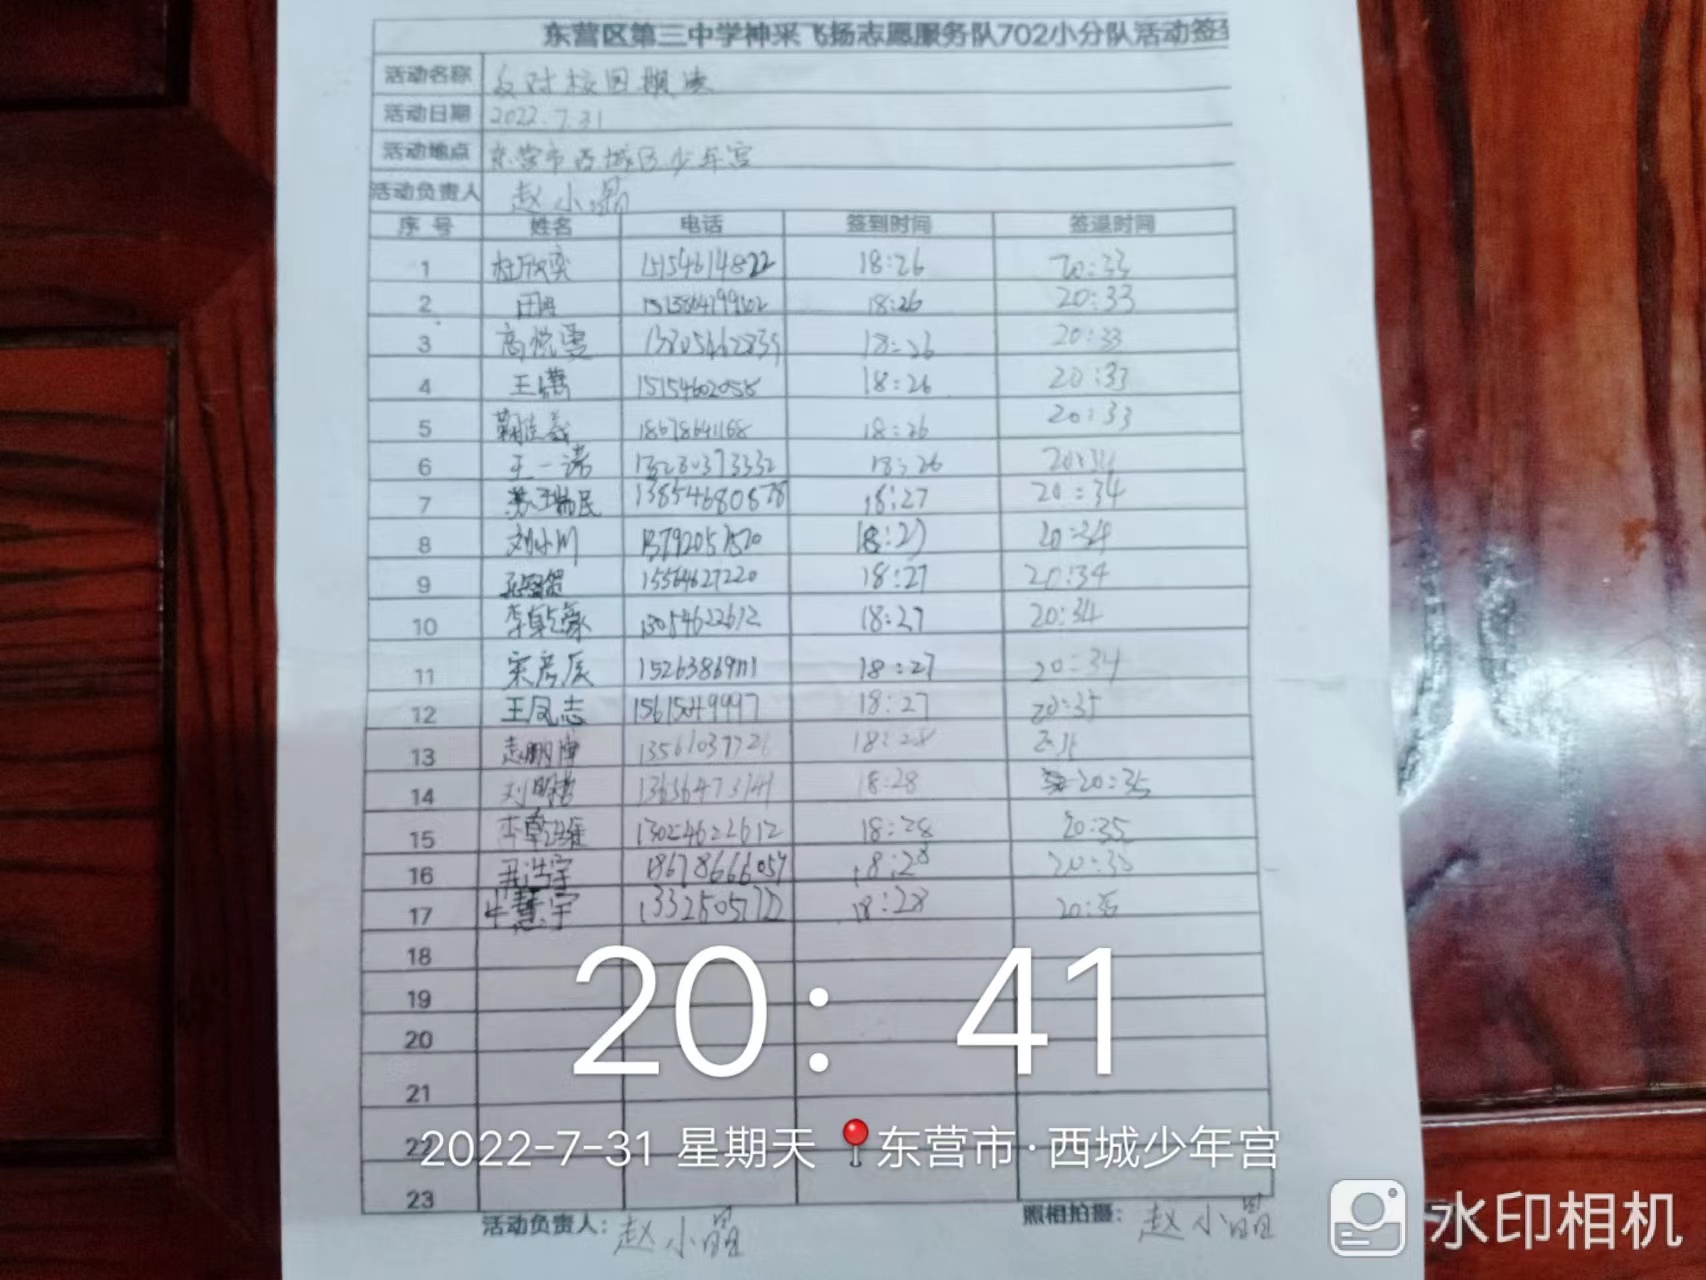 东营区第三中学神采飞扬志愿服务队702小分队活动签到
活动名称 反对校园欺凌
活动日期 2022.7.31
活动地点 东营市西城区少年宫
活动负责人 赵小晶
序号 姓名 电话 签到时间 签退时间
1 15154614822 18:26 20:33
2 18:26 20:33
3 高悦雯 18:26 20:33
4 王 15154602058 18:26 20:33
5 18678641168 18:26 20:33
6 王一诺 18:26 20:34
7 苏瑞民 18:27 20:34
8 刘小川 18:27 20:34
9 15564627220 18:27 20:34
10 李乾豪 18:27 20:34
11 宋彦辰 18:27 20:34
12 王凤志 18:27 20:35
13 18:28
14 刘明 18:28 20:35
15 李乾雄 13054622612 18:28 20:35
16 尹浩宇 18678666057 18:28 20:35
17 牛慧宇 18:28 20:35
18
19
20
21
22
23
20:41
2022-7-31 星期天 东营市·西城少年宫
活动负责人: 赵小晶 照相拍摄: 赵小晶
水印相机